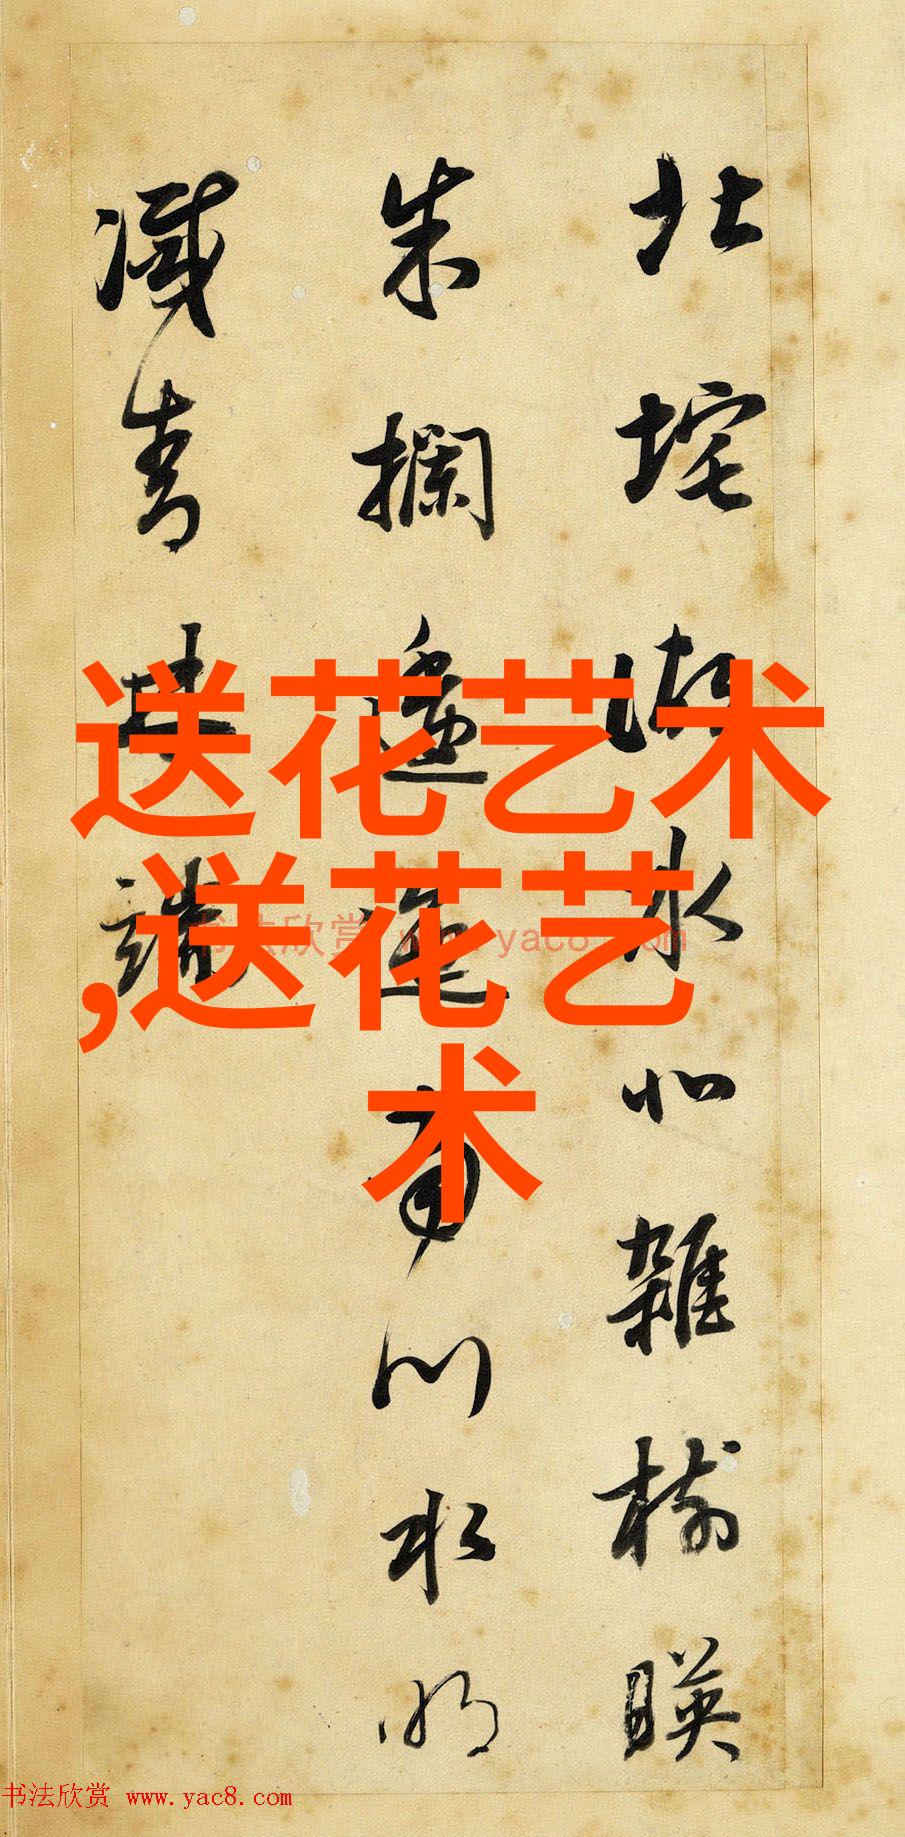 北垞湖水北雜樹暎
朱欄逶迤南川水明
滅青林端
送花艺术
,送花艺
术
书法欣赏 www.yac8.com
书法欣赏 www.yac8.com